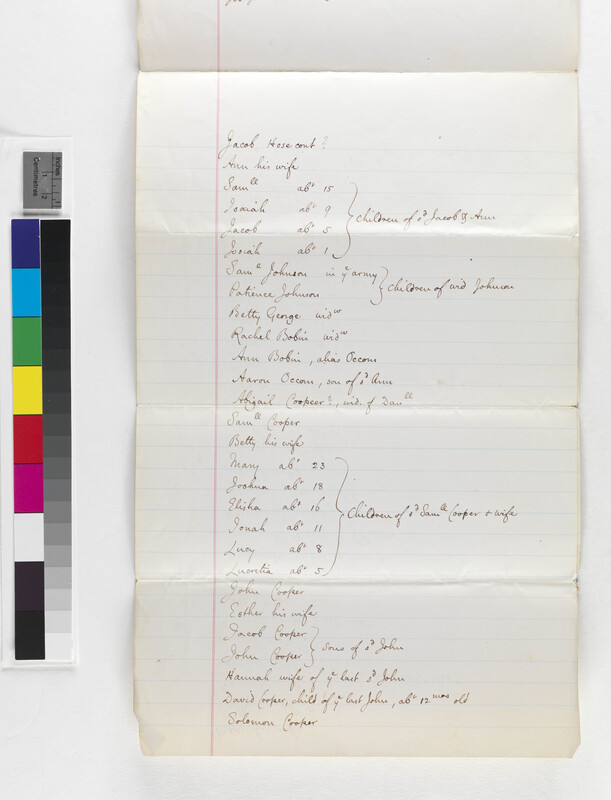 Jacob Hosecont?
Ann his wife
Samll abt 15
Josiah abt 9
Jacob abt 5
Josiah abt 1
Children of sd Jacob & Ann
Samll Johnson in ye army
Patience Johnson
Children of wid Johnson
Betty George widw
Rachel Bobin widw
Ann Bobin, alias Occom
Aaron Occom, son of sd Ann
Abigail Coopeer?, wid. of Danll
Samll Cooper
Betty his wife
Mary abt 23
Joshua abt 18
Elisha abt 16
Jonah abt 11
Lucy abt 8
Lucretia abt 5
Children of sd Samll Cooper & wife
John Cooper
Esther his wife
Jacob Cooper
John Cooper
sons of sd John
Hannah wife of ye last sd John
David Cooper, child of ye last John, abt 12 mos old
Solomon Cooper
Centimetres
Inches